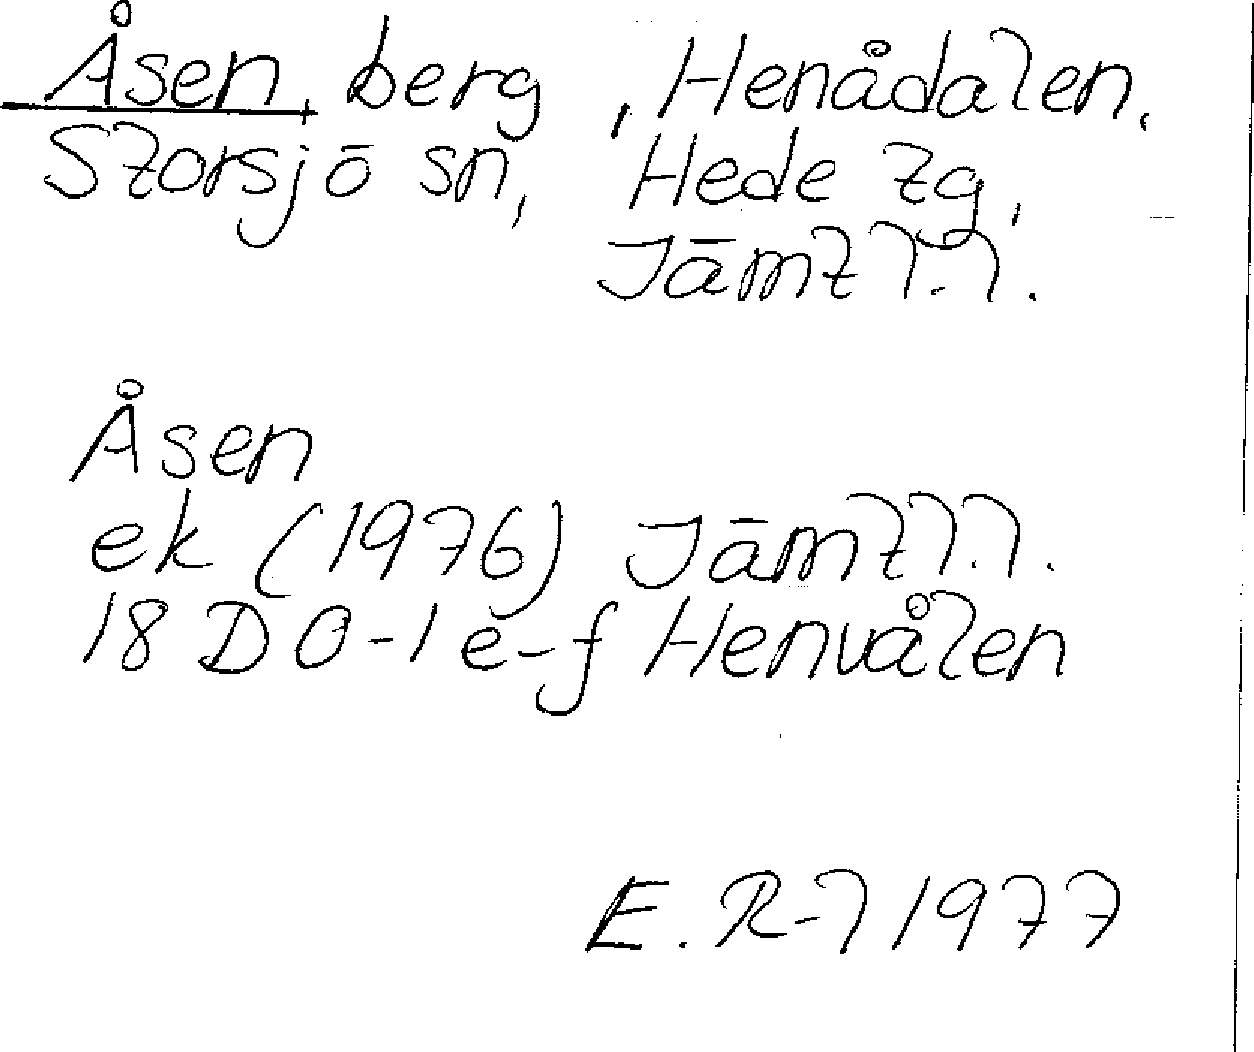 Åsen, berg, Henådalen.
Storsjö sn, Hede tg,
Jämtl.l.
Åsen
ek (1976) Jämtl.l.
18 D 0-1 e-f Henvålen
E. R-l 1977